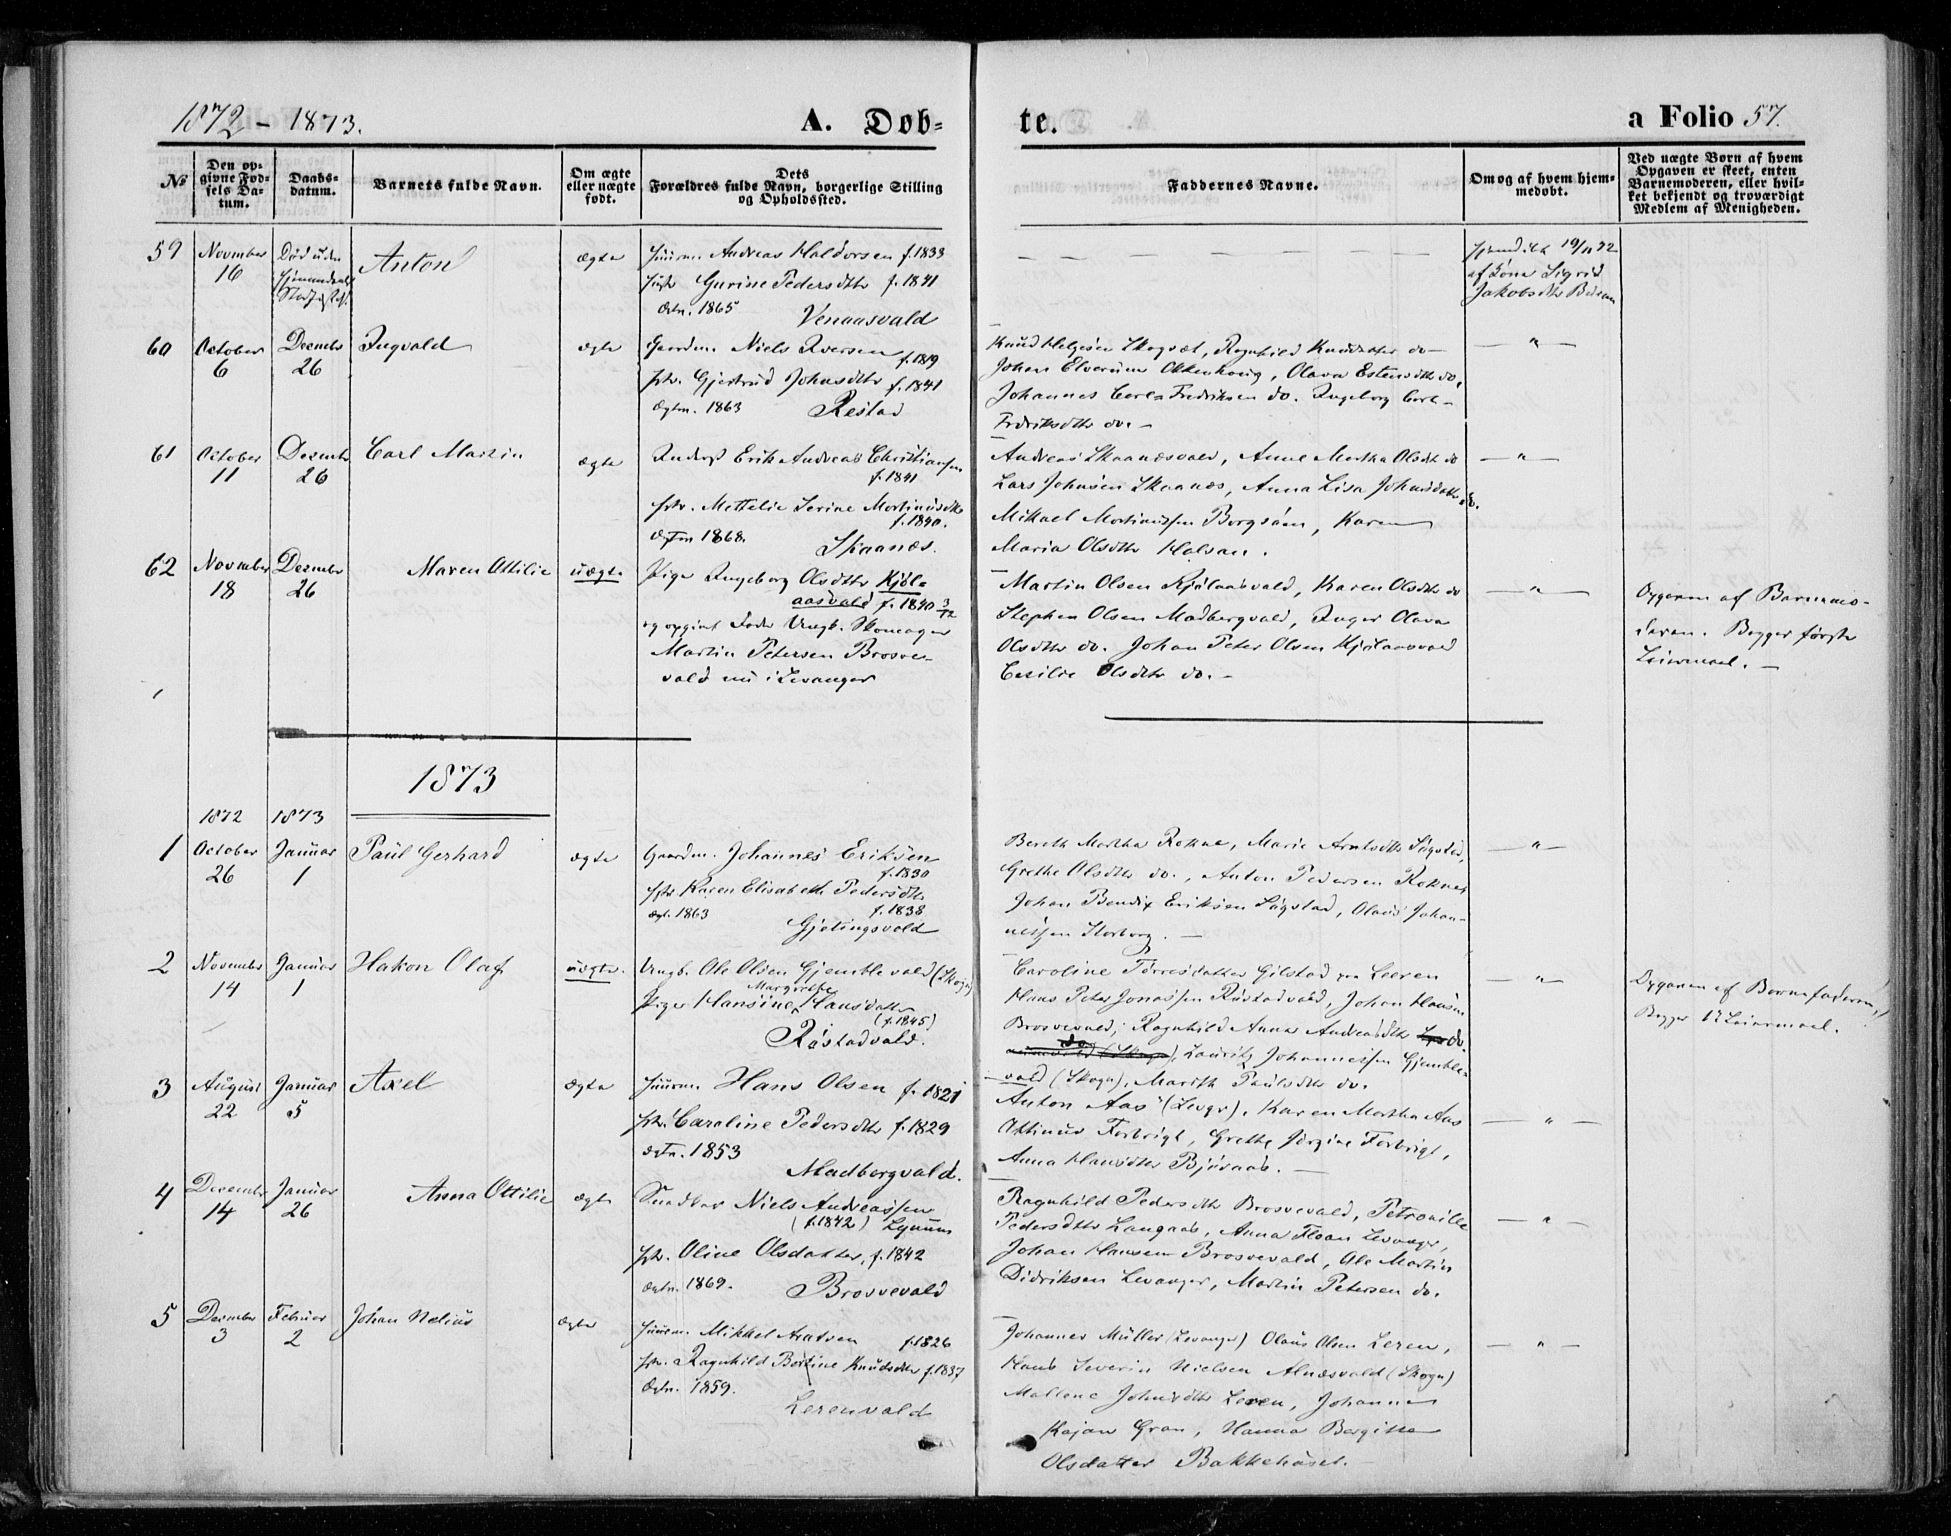 1872 - 1873.
A. Døb-
te.
a Folio 57.
No
Den op-
givne Fød-
sels Da-
tum.
Daabs-
datum.
Barnets fulde Navn.
Om ægte
eller uægte
født.
Dets
Forældres fulde Navn, borgerlige Stilling
og Opholdssted.
Faddernes Navne.
Om og af hvem hjem-
medøbt.
Ved uægte Børn af hvem
Opgaven er skeet, enten
Barnemoderen, eller hvil-
ket bekjendt og troværdigt
Medlem af Menigheden.
59
November
16
Død uden
Anton
ægte
Andreas Haldorsen f. 1833
Gurine Pedersdtr f. 1841
Ægtv. 1865
Venaasvald
19/11 72
af Sigrid
Jakobsdtr
60
October
6
Decembr
26
Ingvald
ægte
Gaardm. Niels Iversen f. 1819
Hstr. Gjertrud Johnsdtr f. 1841
Ægtv. 1863
Restad
Knud Helgesen Skogset, Ragnhild Knudsdtr do -
Johan Elverum Okkenhoug, Olava Estensdtr do,
Johannes Carl Fredriksen do. Ingeborg Carl-
Fredriksdtr do. -
- " -
61
October
11
Decembr
26
Carl Martin
ægte
Inderst Erik Andreas Christiansen
f. 1841
Hstr. Mettelie Serine Martinusdtr
f. 1840.
Ægtv 1868.
Skaanes.
Andreas Skaanesvald, Anne Martha Olsdtr do
Lars Johnsen Skaanes, Anna Lisa Johnsdatter do.
Mikael Martinussen Borgsaas, Karen
Maria Olsdtr Halsan.
- " -
62
November
18
Decembr
26
Maren Ottilie
uægte
Pige Ingeborg Olsdtr Kjøl-
aasvald f. 1840 3/12
og opgivt Fader Ungk. Skomager
Martin Petersen Brosve-
vald nu i Levanger
Martin Olsen Kjølaasvald, Karen Olsdtr do
Stephen Olsen Madbergvald, Inger Olava
Olsdtr do. Johan Peter Olsen Kjølaasvald
Cecilie Olsdtr do. -
- " -
Opgaven af Barnemo-
deren. Begges første
Leiermaal. -
1873
1872
1873
1
October
26
Januar
1
Paul Gerhard
ægte
Gaardm. Johannes Eriksen
f. 1830
Hstr Karen Elisabeth Pedersdtr
f. 1838
Ægt. 1863
Gjetingsvald
Bereth Martha Rokne, Marie Arntsdtr Sagstad,
Grethe Olsdtr do., Anton Pedersen Roknes
Johan Bendix Eriksen Sagstad, Olaus Johan-
nessen Storborg. -
- " -
2
November
14
Januar
1
Hakon Olaf
uægte.
Ungk. Ole Olsen Gjemblevald (Skogn)
Margrethe
Pige Hansine Hansdatter
(f. 1845)
Røstadvald.
Caroline Torresdatter Gilstad Leeren
Hans Peter Jonassen Røstadvald, Johan Hansen
Brosvevald, Ragnhild Anna Andreasdtr do.
Lauritz Johannessen Gjemble-
vald (Skogn), Marith Paulsdtr do.
- " -
Opgaven af Barnefaderen,
Begges 1ste Leiermaal.
3
August
22
Januar
5
Axel
ægte
Huusm. Hans Olsen f. 1821
Hstr. Caroline Pedersdtr f. 1829
Ægtv. 1853
Madbergvald.
Anton Aas (Levgr), Karen Martha Aas
Ottinus Forbrigt, Grethe Jørgine Forbrigt,
Anna Hansdtr Bjøraas. -
- " -
4
December
14
Januar
26
Anna Ottilie
ægte
Snedker Niels Andreassen
(f. 1842) Lynum
Hstr. Oline Olsdatter, f. 1842
Ægtv. 1869.
Brosvevald
Ragnhild Pedersdtr Brosvevald, Petronille
Pedersdtr Langaas, Anna Floan Levanger,
Johan Hansen Brosvevald, Ole Martin
Didriksen Levanger, Martin Petersen do.
- " -
5
December
3
Februar
2
Johan Nelius
ægte
Huusm. Mikkel Arntsen f. 1826
Hstr. Ragnhild Bertine Knudsdtr f. 1837
Ægtv. 1859.
Lerenvald
Johannes Müller (Levanger) Olaus Olsen Leren,
Hans Severin Nielsen Alnesvald (Skogn)
Mallene Johnsdtr Leren, Johanna
Kajan Gran, Hanna Bergitta
Olsdatter Bakkehuset. -
- " -